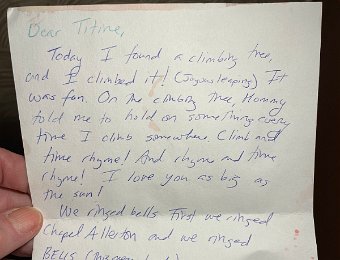 Dear Titine,
Today I found a climbing tree,
and I climbed it! (Joyous leaping) It
was fun. On the climbing tree, Mommy
told me to hold on something every
time I climb somewhere. Climb and
time rhyme! And rhyme and time
rhyme! I love you as big as
the sun!
We ringed bells First we ringed
Chapel Allerton and we ringed
BELLS